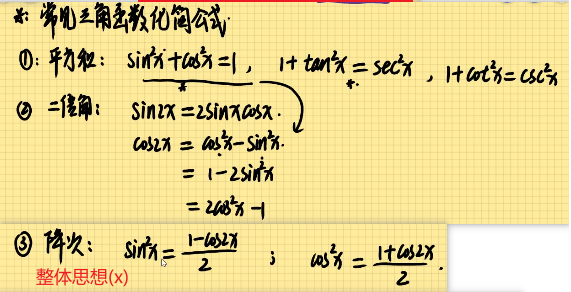 *: 常见三角函数化简公式.
①: 平方和: sin²x+cos²x=1, 1+tan²x=sec²x, 1+cot²x=csc²x
② 二倍角: sin2x=2sinxcosx.
cos2x = cos²x-sin²x.
= 1-2sin²x
= 2cos²x-1
③ 降次: sin²x=\frac{1-cos2x}{2} ; cos²x=\frac{1+cos2x}{2}.
整体思想(x)